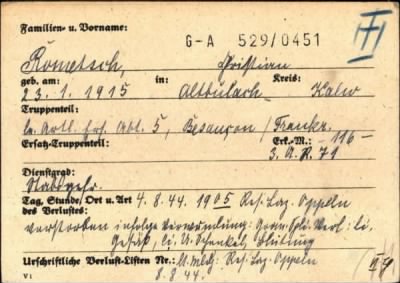 Familien- u. Vorname:
G-A 529/0451
Rometsch, Christian
geb. am: in: Kreis:
23.1.1915 Altbulach Kalw
Truppenteil:
le. Artl. Ers. Abt. 5, Besançon / Frankr.
Ersatz-Truppenteil: Erk.-M.: -116-
3. A.R. 71
Dienstgrad:
Stabsgefr.
Tag, Stunde, Ort u. Art 4.8.44 1905 Res. Laz. Oppeln
des Verlustes:
verstorben infolge Verwundung: Gran. Spl. Verl. li.
Gesäß, li. O. Schenkel, Blutung
Urschriftliche Verlust-Listen Nr.: Res. Laz. Oppeln
V1 8.8.44.